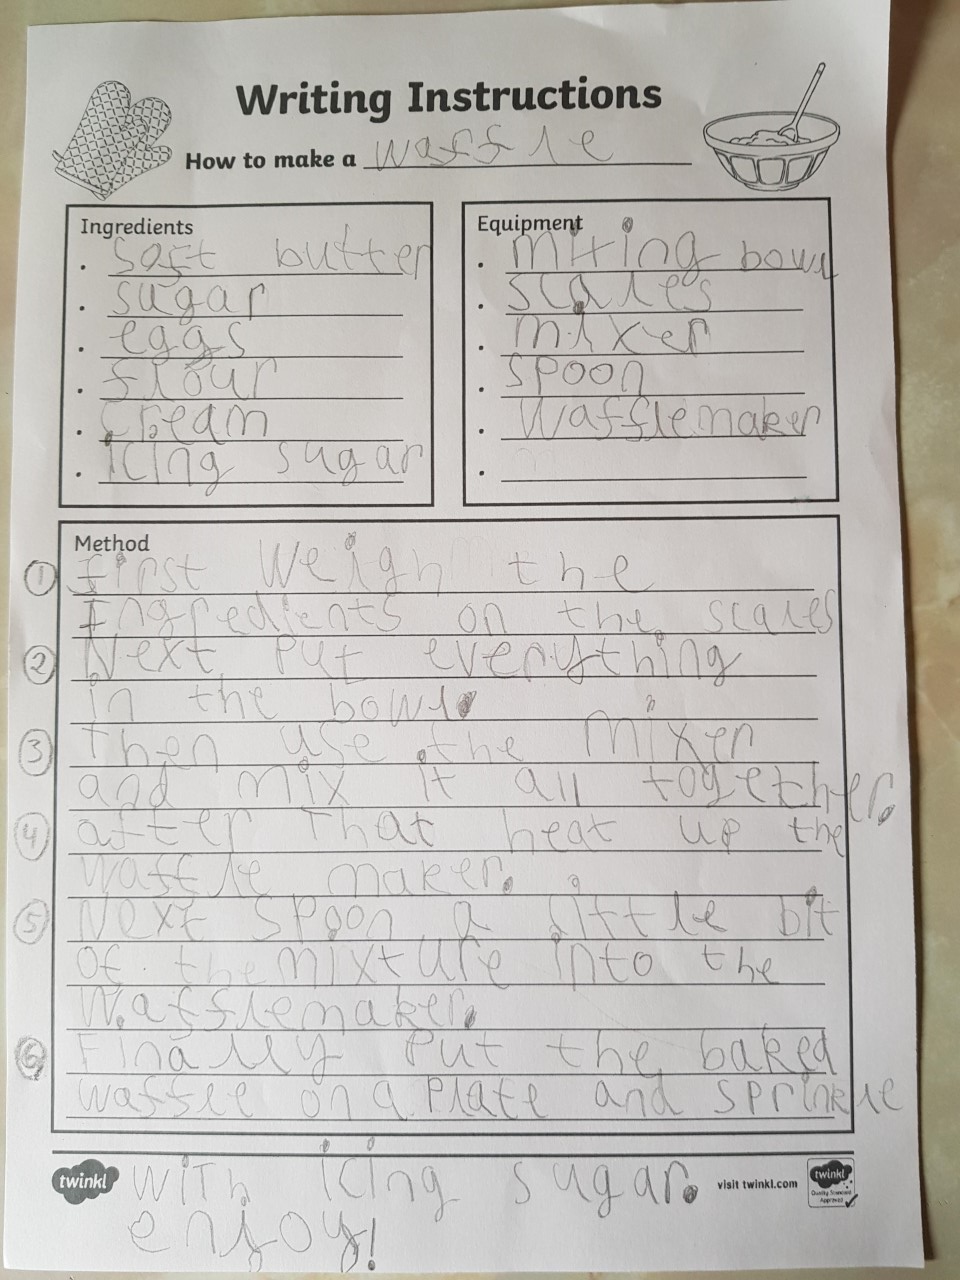 Writing Instructions
How to make a waffle
Ingredients
• Soft butter
• sugar
• eggs
• flour
• Cream
• icing sugar
Equipment
• mixing bowl
• scales
• mixer
• spoon
• Wafflemaker
•
Method
1 First Weigh the
Ingredients on the scales
2 Next Put everything
in the bowl.
3 Then use the mixer
and mix it all together.
4 after That heat up the
waffle maker.
5 Next spoon a little bit
of the mixture into the
Wafflemaker.
6 Finally Put the baked
waffle on a Plate and sprinkle
twinkl with icing sugar.
visit twinkl.com
twinkl
Quality Standard
Approved
enjoy!